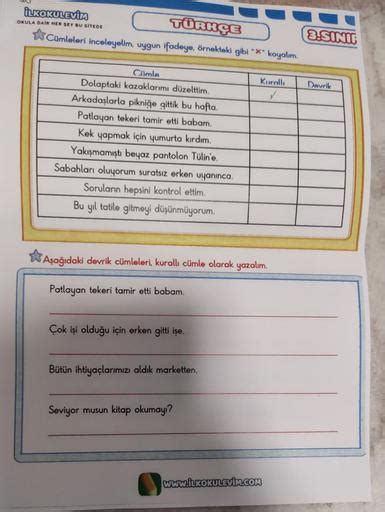 İLKOKULEVİM
OKULA DAİR HER ŞEY BU SİTEDE
TÜRKÇE
3.SINIF
Cümleleri inceleyelim, uygun ifadeye, örnekteki gibi "X" koyalım.
Cümle Kurallı Devrik
Dolaptaki kazaklarımı düzelttim. ✓
Arkadaşlarla pikniğe gittik bu hafta.
Patlayan tekeri tamir etti babam.
Kek yapmak için yumurta kırdım.
Yakışmamıştı beyaz pantolon Tülin'e.
Sabahları oluyorum suratsız erken uyanınca.
Soruların hepsini kontrol ettim.
Bu yıl tatile gitmeyi düşünmüyorum.
Aşağıdaki devrik cümleleri, kurallı cümle olarak yazalım.
Patlayan tekeri tamir etti babam.
Çok işi olduğu için erken gitti işe.
Bütün ihtiyaçlarımızı aldık marketten.
Seviyor musun kitap okumayı?
WWW.İLKOKULEVİM.COM